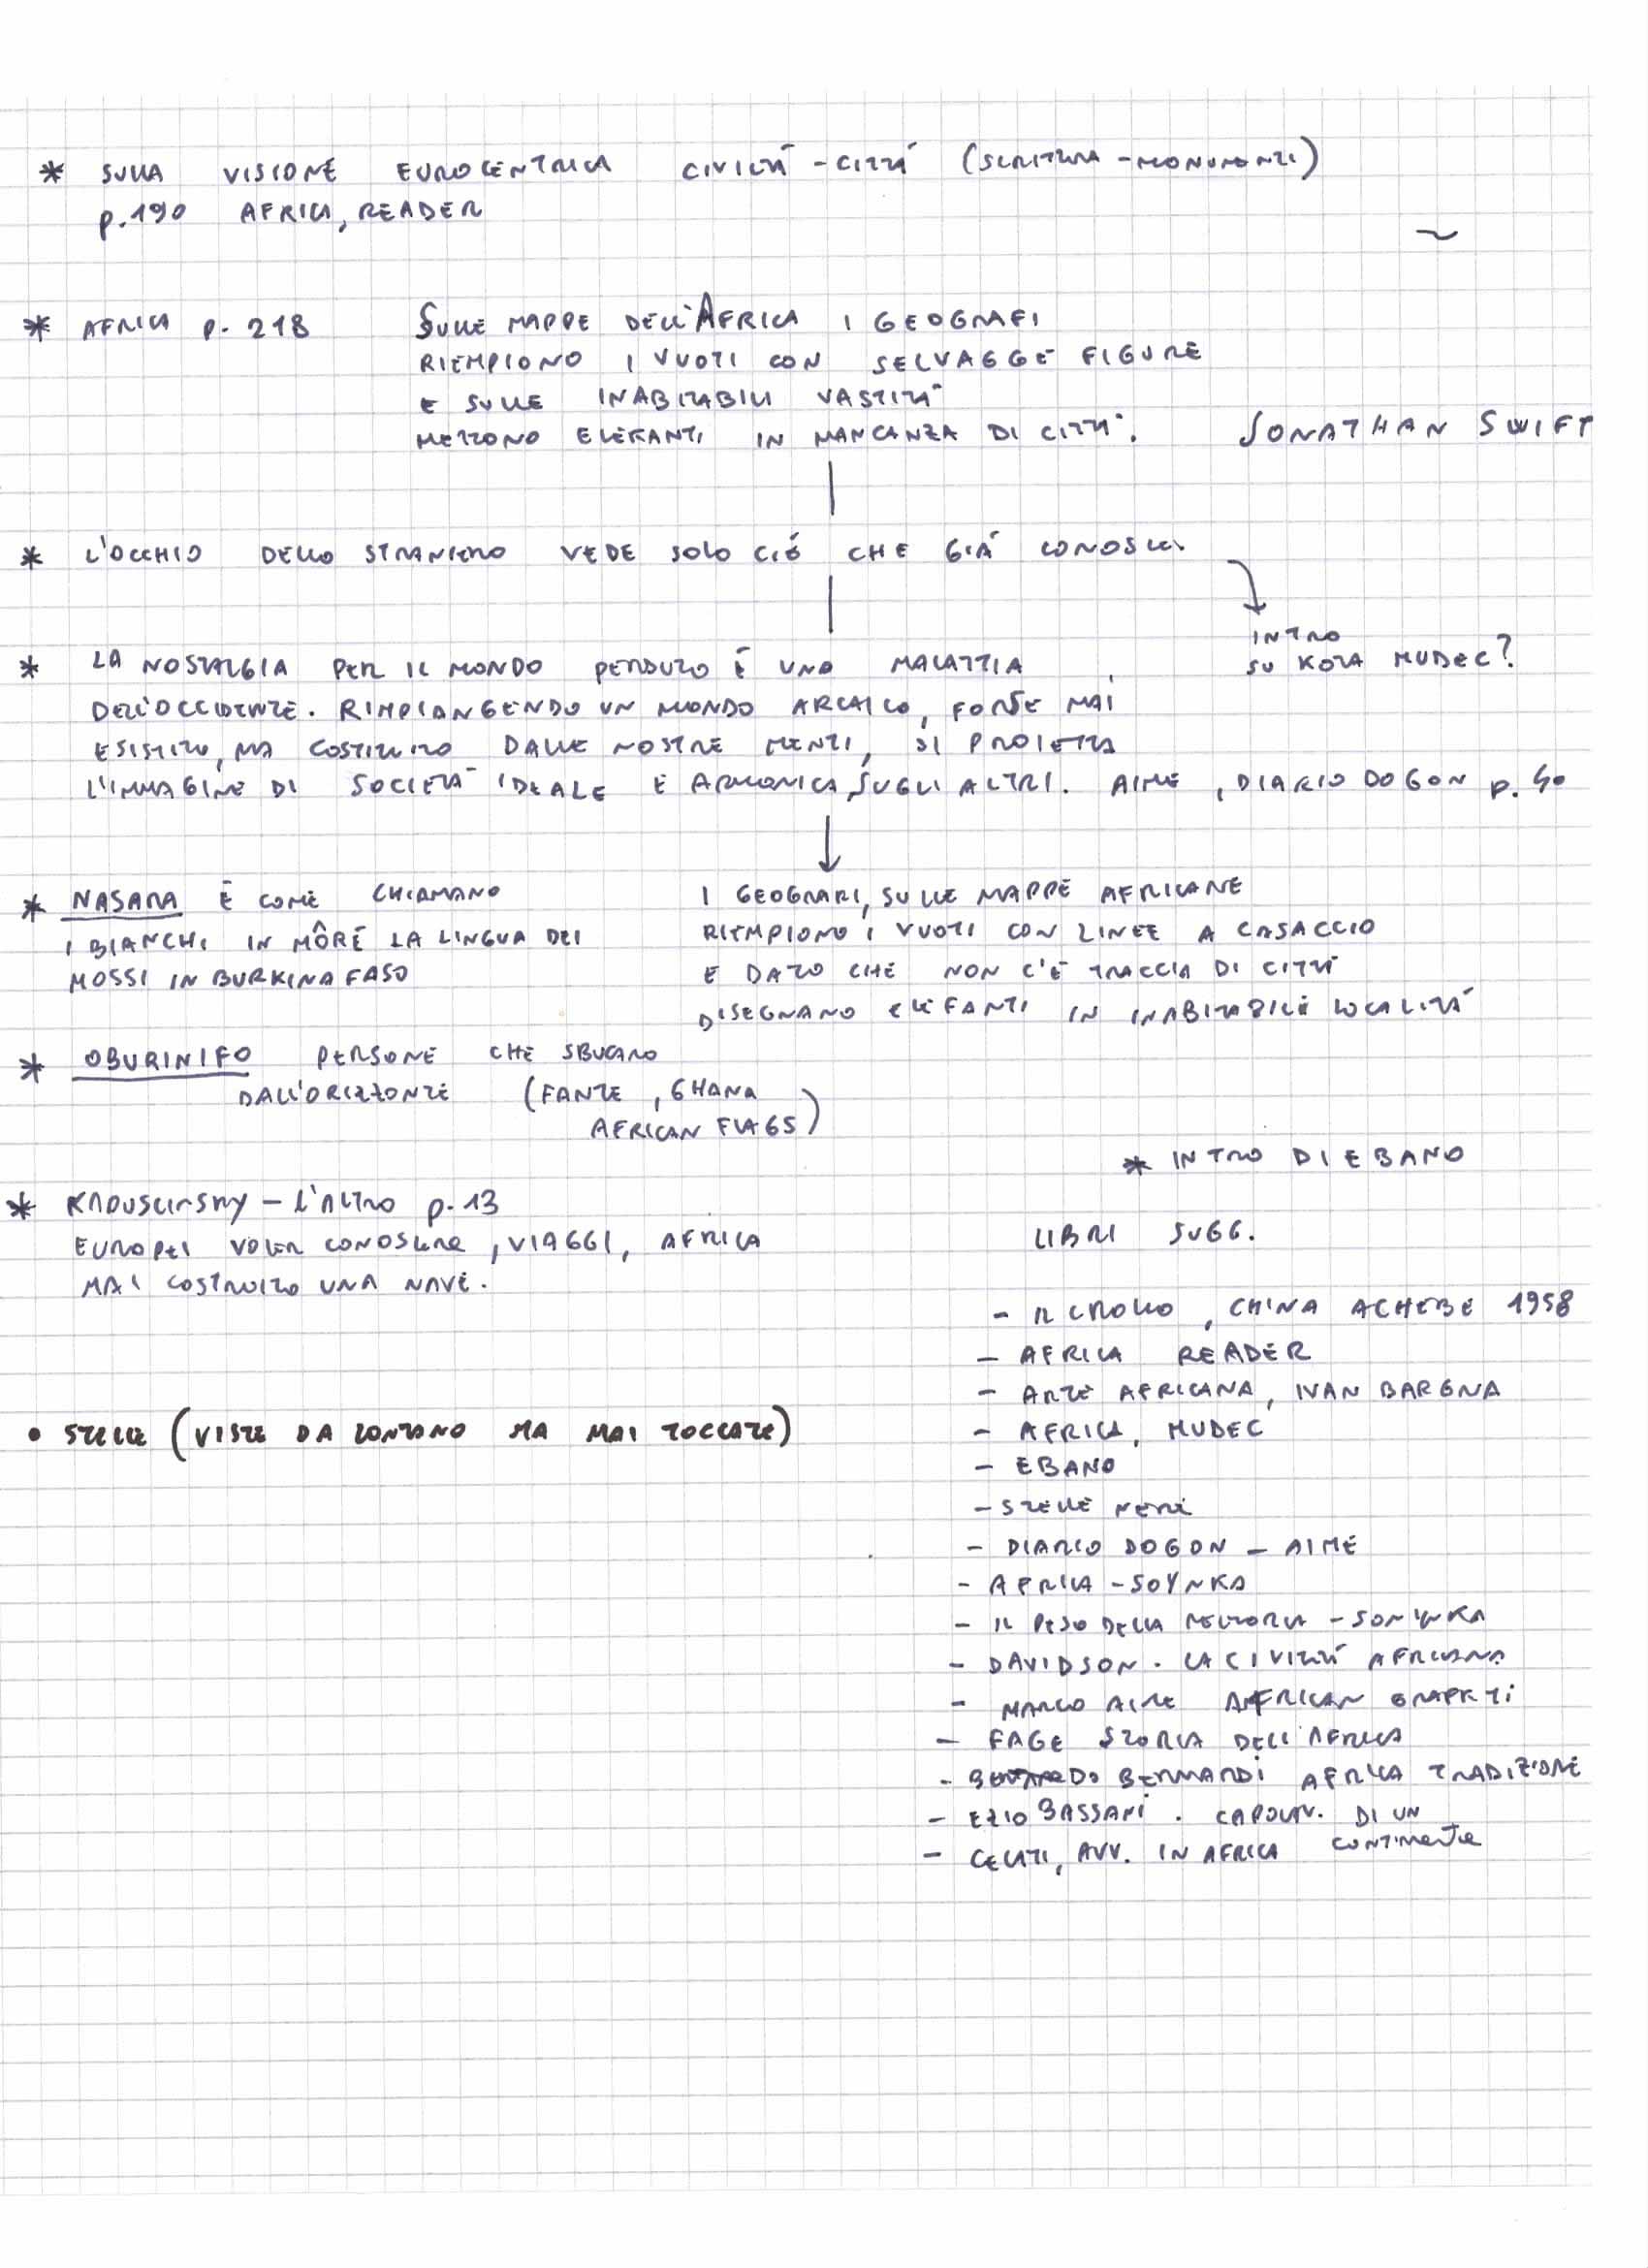 * SULLA VISIONE EUROCENTRICA CIVILTÁ - CITTÁ (SCRITTURA - MONUMENTI)
p.190 AFRICA, READER
~
* AFRICA p. 218
SULLE MAPPE DELL'AFRICA I GEOGRAFI
RIEMPIONO I VUOTI CON SELVAGGE FIGURE
E SULLE INABITABILI VASTITÁ
METTONO ELEFANTI IN MANCANZA DI CITTÁ.
JONATHAN SWIFT
* L'OCCHIO DELLO STRANIERO VEDE SOLO CIÓ CHE GIÁ CONOSCE.
INTRO
SU KOTA MUDEC?
* LA NOSTALGIA PER IL MONDO PERDUTO É UNA MALATTIA
DELL'OCCIDENTE. RIMPIANGENDO UN MONDO ARCAICO, FORSE MAI
ESISTITO, MA COSTRUITO DALLE NOSTRE MENTI, SI PROIETTA
L'IMMAGINE DI SOCIETÁ IDEALE E ARMONICA SUGLI ALTRI. AIME, DIARIO DOGON p. 40
* NASARA É COME CHIAMANO
I BIANCHI IN MÔRÉ LA LINGUA DEI
MOSSI IN BURKINA FASO
I GEOGRARI, SULLE MAPPE AFRICANE
RIEMPIONO I VUOTI CON LINEE A CASACCIO
E DATO CHE NON C'É TRACCIA DI CITTÁ
DISEGNANO ELEFANTI IN INABITABILE LOCALITÁ
* OBURINIFO PERSONE CHE SBUCANO
DALL'ORIZZONTE (FANTE, GHANA
AFRICAN FLAGS)
* INTRO DI EBANO
* KAPUSCINSKY - L'ALTRO p.13
EUROPEI VOLER CONOSCERE, VIAGGI, AFRICA
MAI COSTRUITO UNA NAVE.
LIBRI SUGG.
- IL CROLLO, CHINA ACHEBE 1958
- AFRICA READER
- ARTE AFRICANA, IVAN BARGNA
• STELLE (VISTE DA LONTANO MA MAI TOCCATE)
- AFRICA, MUDEC
- EBANO
- STELLE NERE
- DIARIO DOGON - AIME
- AFRICA - SOYNKA
- IL PESO DELLA MEMORIA - SOYINKA
- DAVIDSON. LA CIVILTÁ AFRICANA
- MARCO AIME AFRICAN GRAFFITI
- FAGE STORIA DELL'AFRICA
- BERNARDI AFRICA TRADIZIONE
- EZIO BASSANI. CAPOLAV. DI UN
CONTINENTE
- CELATI, AVV. IN AFRICA